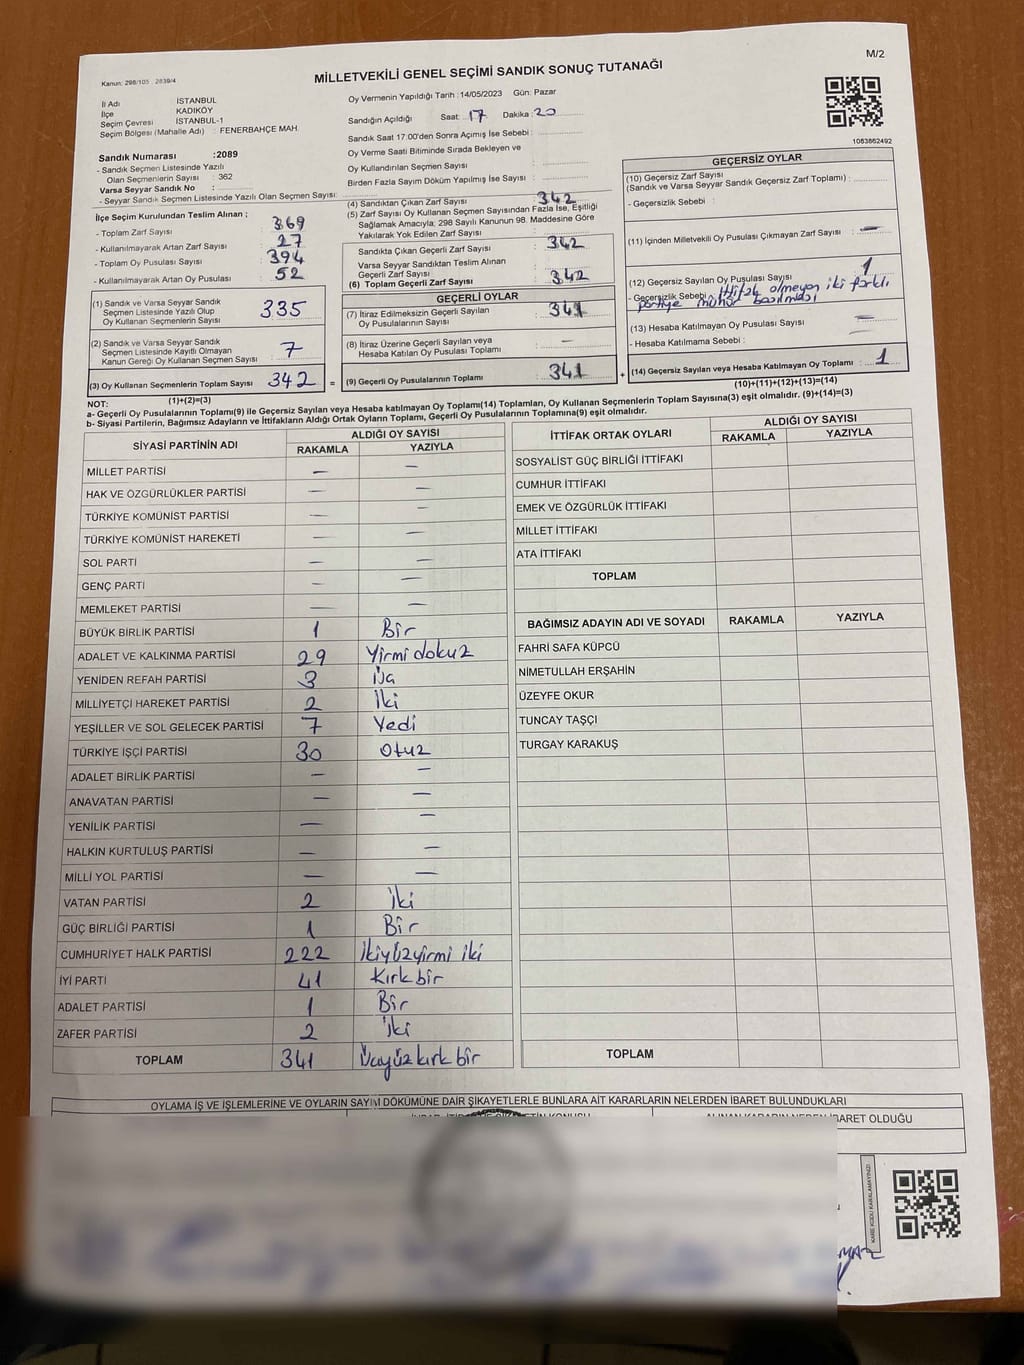 M/2
Kanun: 298/105 2839/4
MİLLETVEKİLİ GENEL SEÇİMİ SANDIK SONUÇ TUTANAĞI
İl Adı İSTANBUL
İlçe KADIKÖY
Seçim Çevresi İSTANBUL-1
Seçim Bölgesi (Mahalle Adı) : FENERBAHÇE MAH.
Sandık Numarası :2089
- Sandık Seçmen Listesinde Yazılı
Olan Seçmenlerin Sayısı : 362
Varsa Seyyar Sandık No :
- Seyyar Sandık Seçmen Listesinde Yazılı Olan Seçmen Sayısı:
İlçe Seçim Kurulundan Teslim Alınan ;
- Toplam Zarf Sayısı : 369
- Kullanılmayarak Artan Zarf Sayısı : 27
- Toplam Oy Pusulası Sayısı : 394
- Kullanılmayarak Artan Oy Pusulası : 52
(1) Sandık ve Varsa Seyyar Sandık
Seçmen Listesinde Yazılı Olup
Oy Kullanan Seçmenlerin Sayısı : 335
(2) Sandık ve Varsa Seyyar Sandık
Seçmen Listesinde Kayıtlı Olmayan
Kanun Gereği Oy Kullanan Seçmen Sayısı : 7
(3) Oy Kullanan Seçmenlerin Toplam Sayısı : 342
(1)+(2)=(3)
Oy Vermenin Yapıldığı Tarih :14/05/2023 Gün: Pazar
Sandığın Açıldığı Saat: 17 Dakika : 20
Sandık Saat 17:00'den Sonra Açımış İse Sebebi :
Oy Verme Saati Bitiminde Sırada Bekleyen ve
Oy Kullandırılan Seçmen Sayısı :
Birden Fazla Sayım Döküm Yapılmış İse Sayısı :
(4) Sandıktan Çıkan Zarf Sayısı : 342
(5) Zarf Sayısı Oy Kullanan Seçmen Sayısından Fazla İse, Eşitliği
Sağlamak Amacıyla, 298 Sayılı Kanunun 98. Maddesine Göre
Yakılarak Yok Edilen Zarf Sayısı :
Sandıkta Çıkan Geçerli Zarf Sayısı : 342
Varsa Seyyar Sandıktan Teslim Alınan
Geçerli Zarf Sayısı :
(6) Toplam Geçerli Zarf Sayısı : 342
GEÇERLİ OYLAR
(7) İtiraz Edilmeksizin Geçerli Sayılan
Oy Pusulalarının Sayısı : 341
(8) İtiraz Üzerine Geçerli Sayılan veya
Hesaba Katılan Oy Pusulası Toplamı : —
= (9) Geçerli Oy Pusulalarının Toplamı : 341
1063862492
GEÇERSİZ OYLAR
(10) Geçersiz Zarf Sayısı
(Sandık ve Varsa Seyyar Sandık Geçersiz Zarf Toplamı) :
- Geçersizlik Sebebi :
(11) İçinden Milletvekili Oy Pusulası Çıkmayan Zarf Sayısı : —
(12) Geçersiz Sayılan Oy Pusulası Sayısı : 1
- Geçersizlik Sebebi : İttifak olmayan iki farklı
partiye mühür basılması
(13) Hesaba Katılmayan Oy Pusulası Sayısı : —
- Hesaba Katılmama Sebebi : —
+ (14) Geçersiz Sayılan veya Hesaba Katılmayan Oy Toplamı : 1
(10)+(11)+(12)+(13)=(14)
NOT:
a- Geçerli Oy Pusulalarının Toplamı(9) ile Geçersiz Sayılan veya Hesaba katılmayan Oy Toplamı(14) Toplamları, Oy Kullanan Seçmenlerin Toplam Sayısına(3) eşit olmalıdır. (9)+(14)=(3)
b- Siyasi Partilerin, Bağımsız Adayların ve İttifakların Aldığı Ortak Oyların Toplamı, Geçerli Oy Pusulalarının Toplamına(9) eşit olmalıdır.
SİYASİ PARTİNİN ADI ALDIĞI OY SAYISI
RAKAMLA YAZIYLA
MİLLET PARTİSİ — —
HAK VE ÖZGÜRLÜKLER PARTİSİ — —
TÜRKİYE KOMÜNİST PARTİSİ — —
TÜRKİYE KOMÜNİST HAREKETİ — —
SOL PARTİ — —
GENÇ PARTİ — —
MEMLEKET PARTİSİ — —
BÜYÜK BİRLİK PARTİSİ 1 Bir
ADALET VE KALKINMA PARTİSİ 29 Yirmi dokuz
YENİDEN REFAH PARTİSİ 3 Üç
MİLLİYETÇİ HAREKET PARTİSİ 2 İki
YEŞİLLER VE SOL GELECEK PARTİSİ 7 Yedi
TÜRKİYE İŞÇİ PARTİSİ 30 Otuz
ADALET BİRLİK PARTİSİ — —
ANAVATAN PARTİSİ — —
YENİLİK PARTİSİ — —
HALKIN KURTULUŞ PARTİSİ — —
MİLLİ YOL PARTİSİ — —
VATAN PARTİSİ 2 İki
GÜÇ BİRLİĞİ PARTİSİ 1 Bir
CUMHURİYET HALK PARTİSİ 222 İkiyüzyirmi iki
İYİ PARTİ 41 Kırk bir
ADALET PARTİSİ 1 Bir
ZAFER PARTİSİ 2 İki
TOPLAM 341 Üçyüzkırk bir
İTTİFAK ORTAK OYLARI ALDIĞI OY SAYISI
RAKAMLA YAZIYLA
SOSYALİST GÜÇ BİRLİĞİ İTTİFAKI
CUMHUR İTTİFAKI
EMEK VE ÖZGÜRLÜK İTTİFAKI
MİLLET İTTİFAKI
ATA İTTİFAKI
TOPLAM
BAĞIMSIZ ADAYIN ADI VE SOYADI RAKAMLA YAZIYLA
FAHRİ SAFA KÜPCÜ
NİMETULLAH ERŞAHİN
ÜZEYFE OKUR
TUNCAY TAŞÇI
TURGAY KARAKUŞ
TOPLAM
OYLAMA İŞ VE İŞLEMLERİNE VE OYLARIN SAYIM DÖKÜMÜNE DAİR ŞİKAYETLERLE BUNLARA AİT KARARLARIN NELERDEN İBARET BULUNDUKLARI
ALINAN KARARIN NEDEN İBARET OLDUĞU
KARE KODU KARALAMAYINIZ!